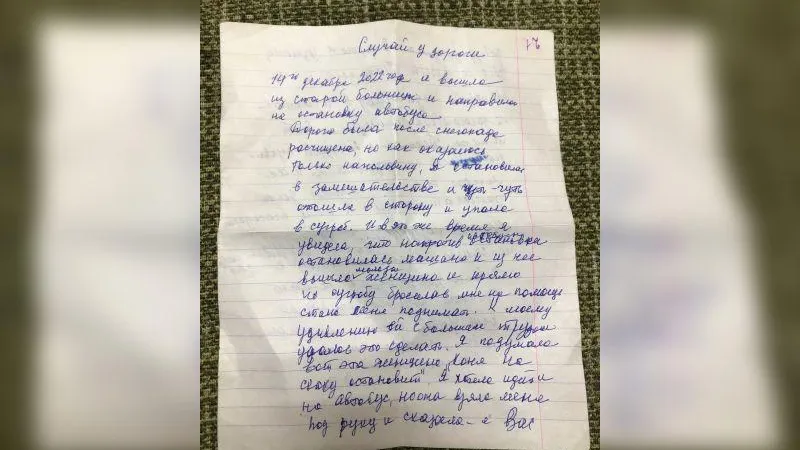 21
Случай у дороги
14го декабря 2022 год я вышла
из старой больницы и направилась
на остановку автобуса
Дорога была после снегопада
расчищена, но как оказалось
только наполовину, я остановилась
в замешательстве и чуть-чуть
отошла в сторону и упала
в сугроб. И в это же время я
увидела, что напротив
остановилась машина и из нее
вышла молодая женщина и прямо
по сугробу бросилась мне на помощь
стала меня поднимать. К моему
удивлению ей с большим трудом
удалось это сделать. Я подумала
вот эта женщина "Коня на
скаку остановит". Я хотела идти
на автобус, но она взяла меня
под руку и сказала - я Вас